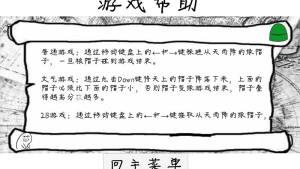 游戏帮助
普通游戏：通过移动键盘上的←和→键躲避从天而降的绿帽
子，一旦被帽子碰到游戏结束。
天气游戏：通过点击Down键将天上的帽子降落下来，上面的
帽子必须比下面的帽子小，否则帽子变绿游戏结束，帽子叠
得越高分数越多。
28游戏：通过移动键盘上的←和→键接取从天而降的绿帽子，
回主菜单